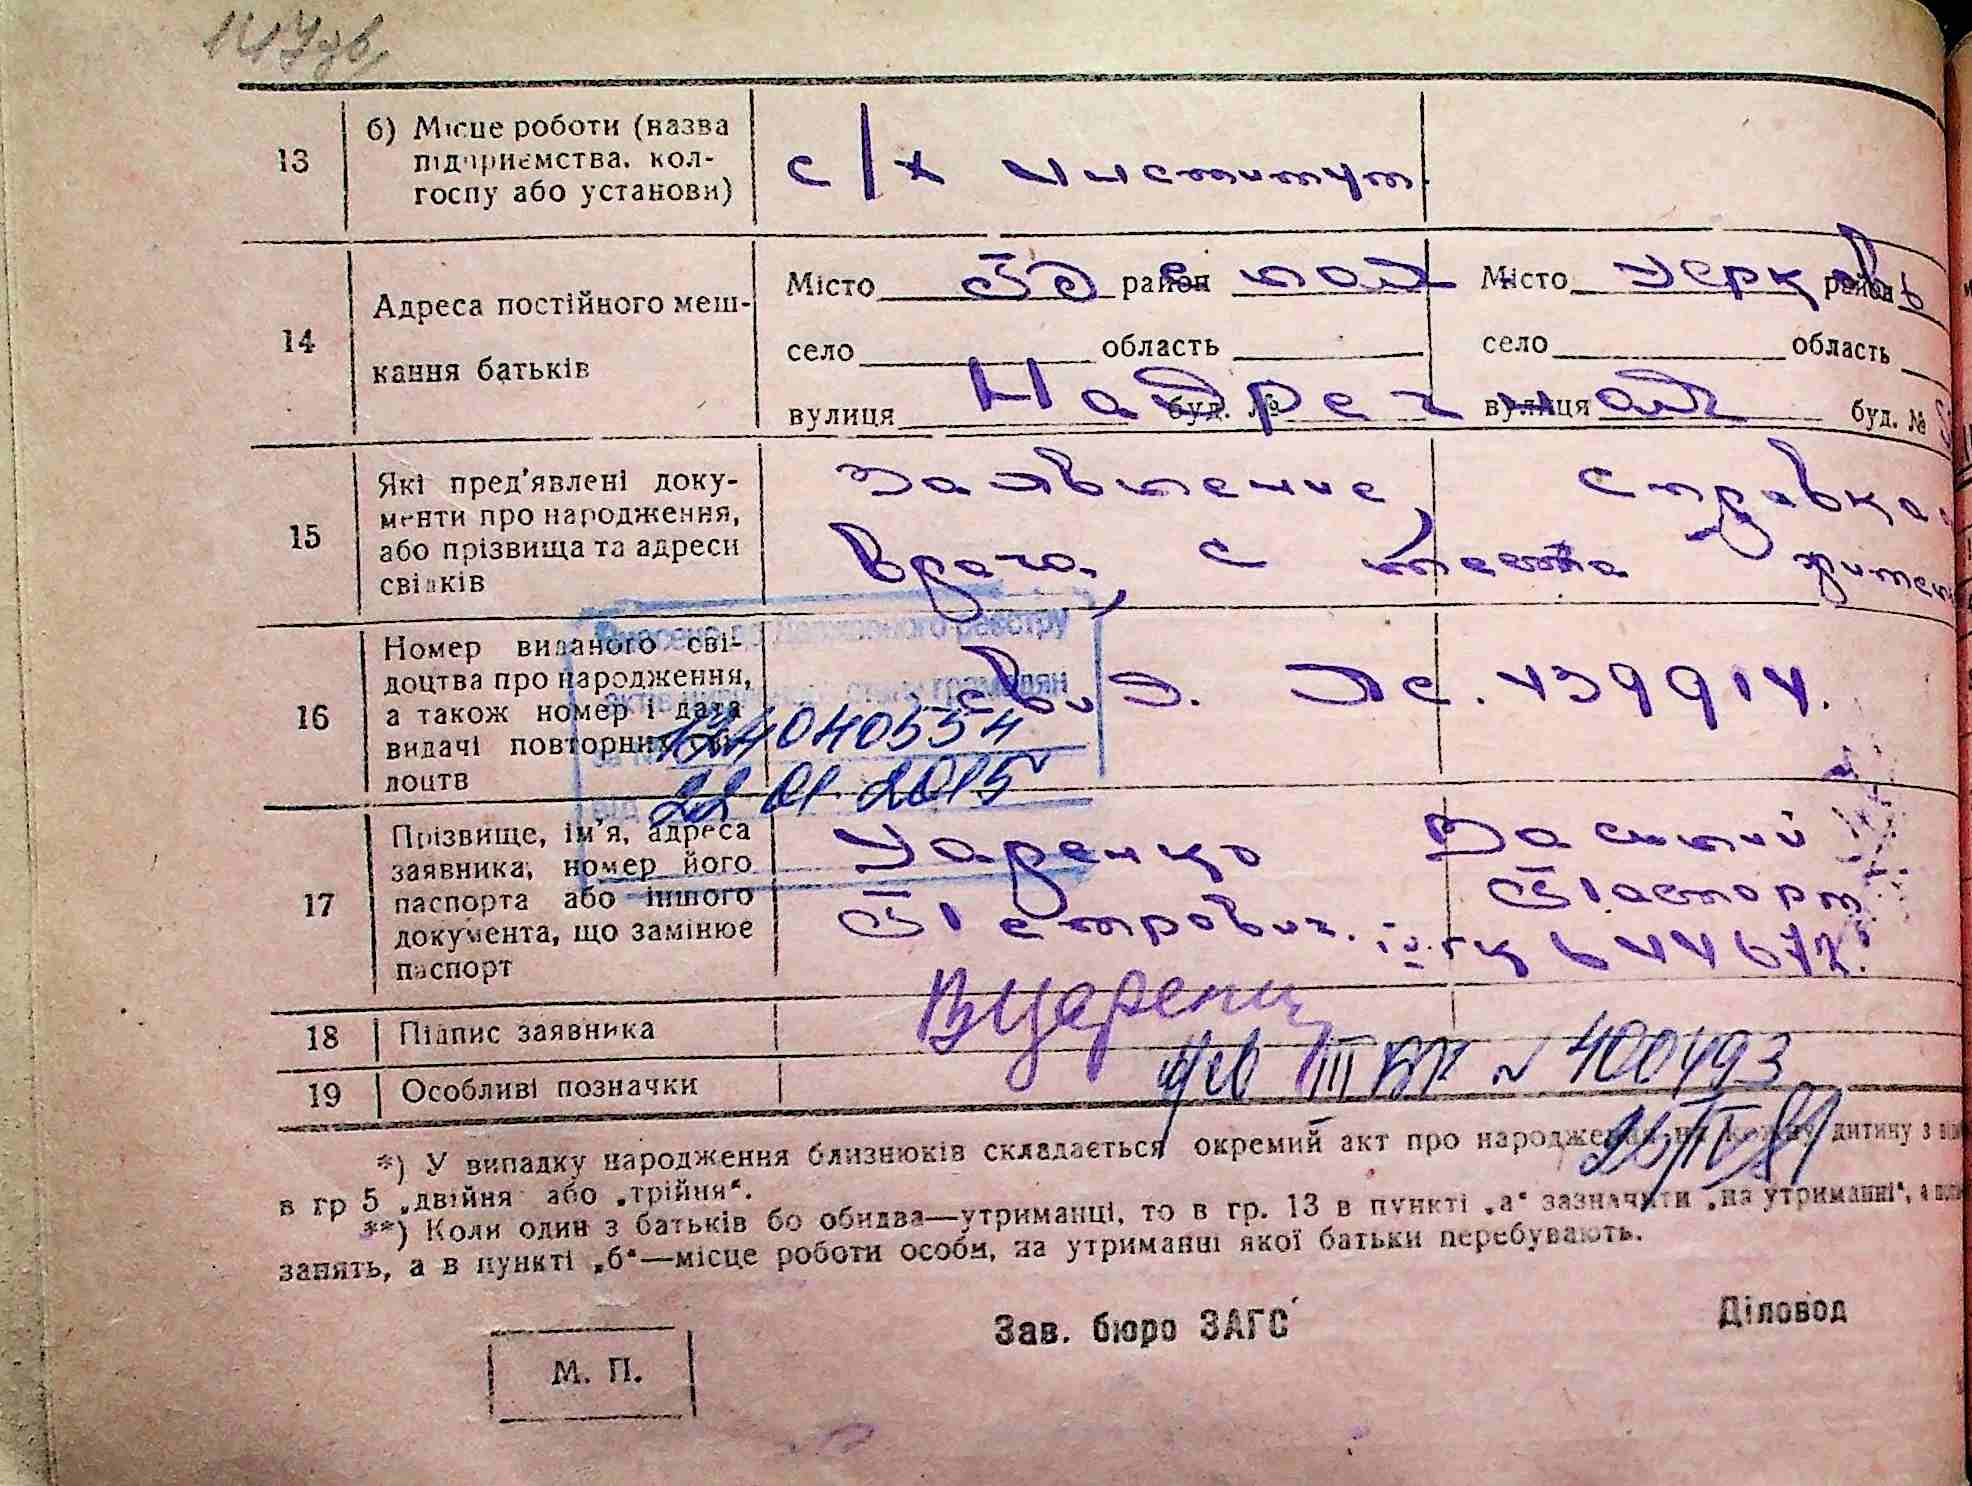 147зв
13
б) Місце роботи (назва
підприємства, кол-
госпу або установи)
с/х институт.
14
Адреса постійного меш-
кання батьків
Місто район
село область
вулиця Надреч буд. №
Місто Церковь район
село область
вулиця ная буд. №
15
Які пред'явлені доку-
менти про народження,
або прізвища та адреси
свідків
Заявление, справка
врача, с места
16
Номер виданого сві-
доцтва про народження,
а також номер і дата
видачі повторних сві-
доцтв
свид. 439914.
Внесено до Державного реєстру
актів цивільного стану громадян
за №
від 22 01. 2015
17
Прізвище, ім'я, адреса
заявника, номер його
паспорта або іншого
документа, що замінює
паспорт
Царенко Василий
Петрович. Паспорт
18
Підпис заявника
ВЦаренк
19
Особливі позначки
III БК № 400493
*) У випадку народження близнюків складається окремий акт про народження на кожну дитину з
в гр 5 „двійня" або „трійня".
**) Коли один з батьків бо обидва—утриманці, то в гр. 13 в пункті „а" зазначити „на утриманні", а
занять, а в пункті „б"—місце роботи особи, на утриманні якої батьки перебувають.
М. П.
Зав. бюро ЗАГС
Діловод